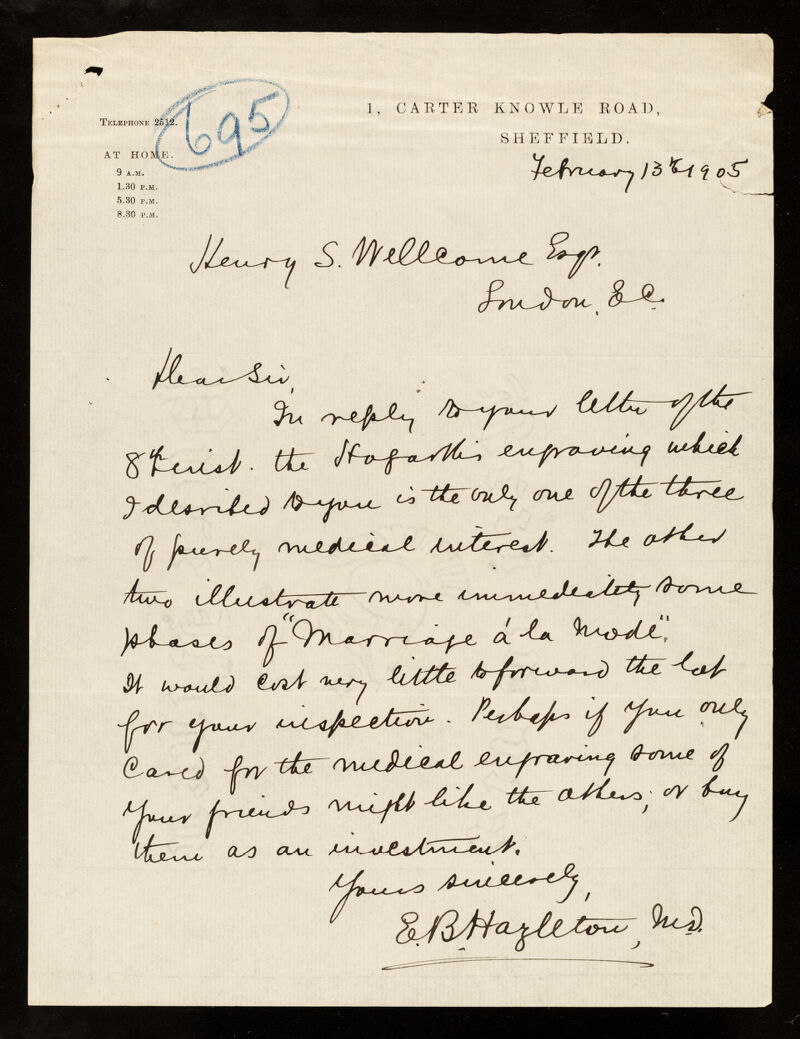 1, CARTER KNOWLE ROAD,
SHEFFIELD.
TELEPHONE 2512.
695
AT HOME.
9 A.M.
1.30 P.M.
5.30 P.M.
8.30 P.M.
February 13th 1905
Henry S. Wellcome Esqr.
London, E.C.
Dear Sir,
In reply to your letter of the
8th inst. the Hogarth's engraving which
I desribed to you is the only one of the three
of purely medical interest. The other
two illustrate more immediately some
phases of "Marriage á la Mode".
It would cost very little to forward the lot
for your inspection. Perhaps if you only
cared for the medical engraving some of
your friends might like the others, or buy
them as an investment.
Yours sincerely,
E. B. Hazleton, M.D.